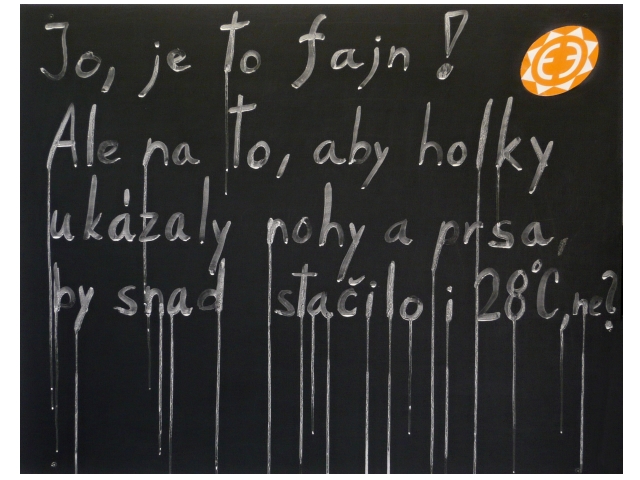 Jo, je to fajn!
Ale na to, aby holky
ukázaly nohy a prsa,
by snad stačilo i 28°C, ne?